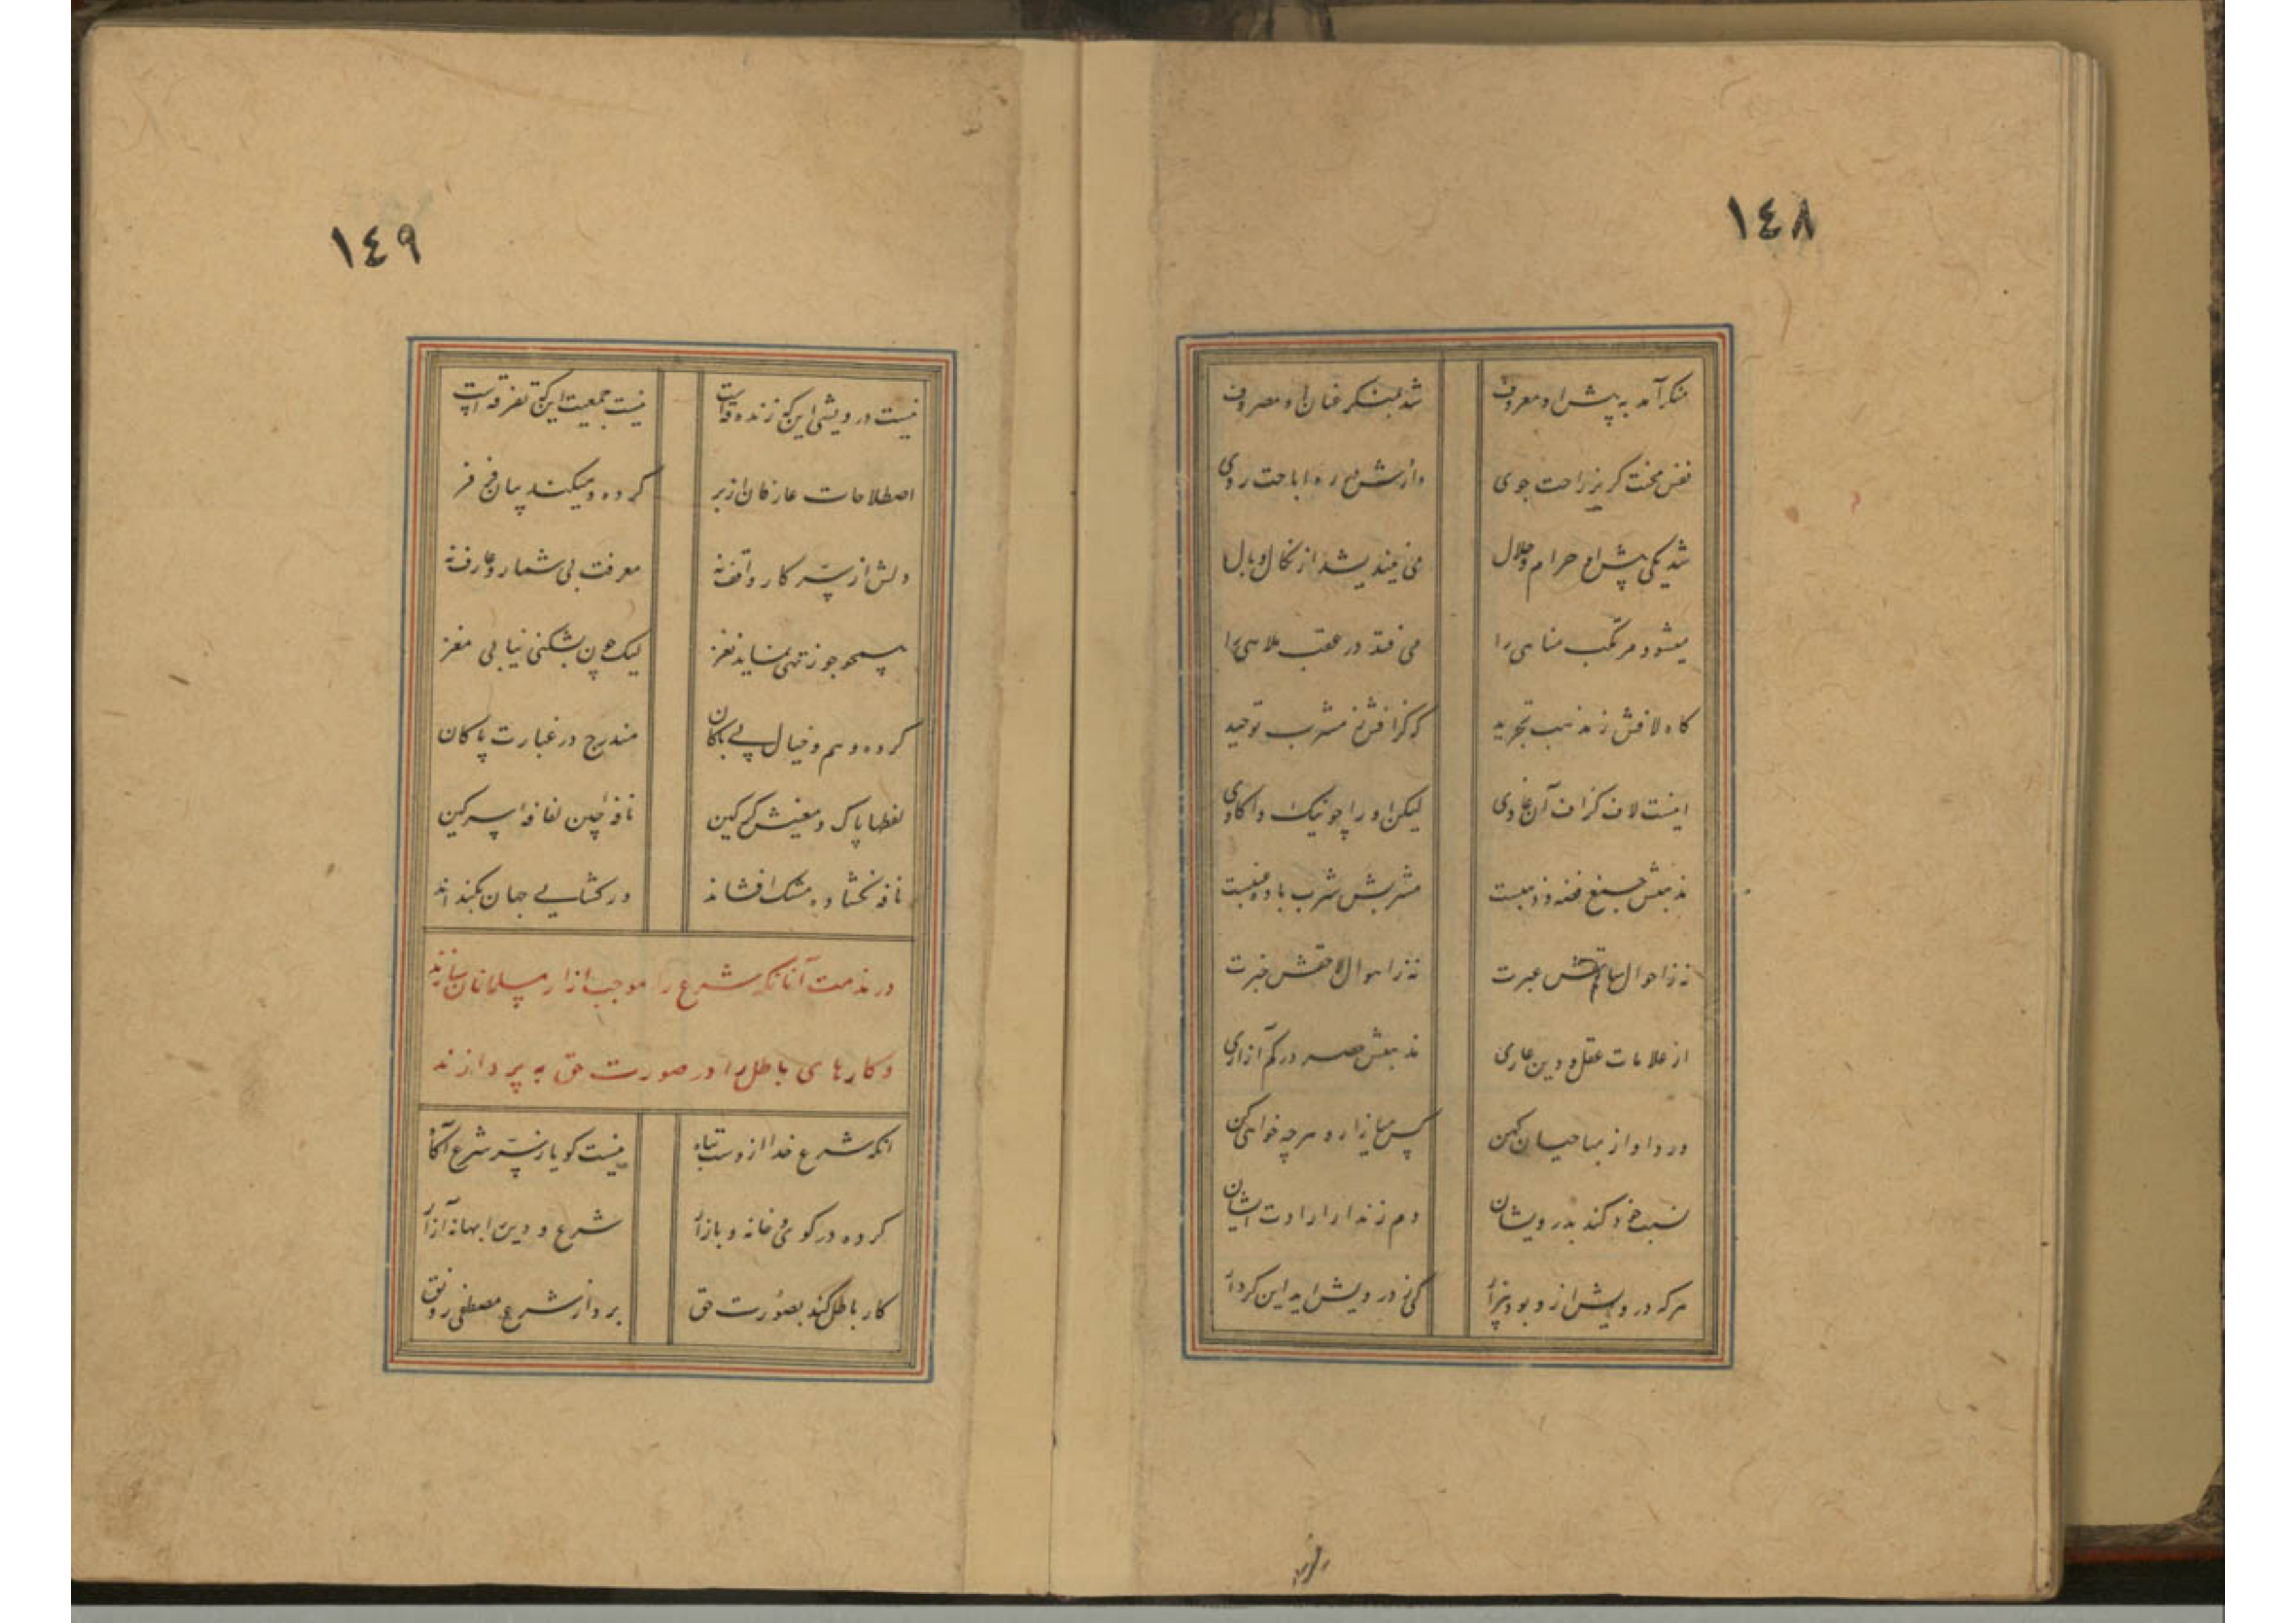 ١٤٨
منکر آمد به پیش او معروف
شد بمنکر عنان او مصروف
نفس محنت گریز راحت جوی
داردش در ره اباحت روی
شد یکی پیش او حرام و حلال
می نیندیشد از نکال و بال
میشود مرتکب مناهی را
می فتد در عقب ملاهی را
گاه لافش ز مذهب تجرید
گه گزافش ز مشرب توحید
اینست لاف گزاف آن غاوی
لیکن او را چو نیک واکاوی
مذهبش جمع فضه و ذهبست
مشربش شرب باده عنبست
نه ز احوال سابقش عبرت
نه ز اهوال لاحقش خبرت
از علامات عقل و دین عاری
مذهبش حصر در کم آزاری
ورد او از مباحیان کهن
کس میازار و هر چه خواهی کن
نسبت خود کند بدرویشان
دم زند از ارادت ایشان
هر که درویش ازو بود بیزار
کی ز درویش اید این کردار
١٤٩
نیست درویشی این که زندقه است
نیست جمعیت این که تفرقه است
اصطلاحات عارفان از بر
کرده و میکند بیان خر خر
دلش از سر کار واقف نه
معرفت بی شمار و عارف نه
همچو جوز تهی نماید نغز
لیک چون بشکنی نیابی مغز
کرده وهم و خیال بی باکان
مندرج در عبارت پاکان
لفظها پاک و معنیش گرگین
نافه چین لفافه سرگین
نافه نکشاده مشک افشاند
ور کشایی جهان بگنداند
در مذمت آنانکه شرع را موجب ازار مسلمانان سازند
و کارهای باطل را در صورت حق به پردازند
انکه شرع خدا ازوست تباه
نیست گویا ز سر شرع آگاه
کرده در کوی و خانه و بازار
شرع و دین را بهانه آزار
کار باطل کند بصورت حق
برد از شرع مصطفی رونق